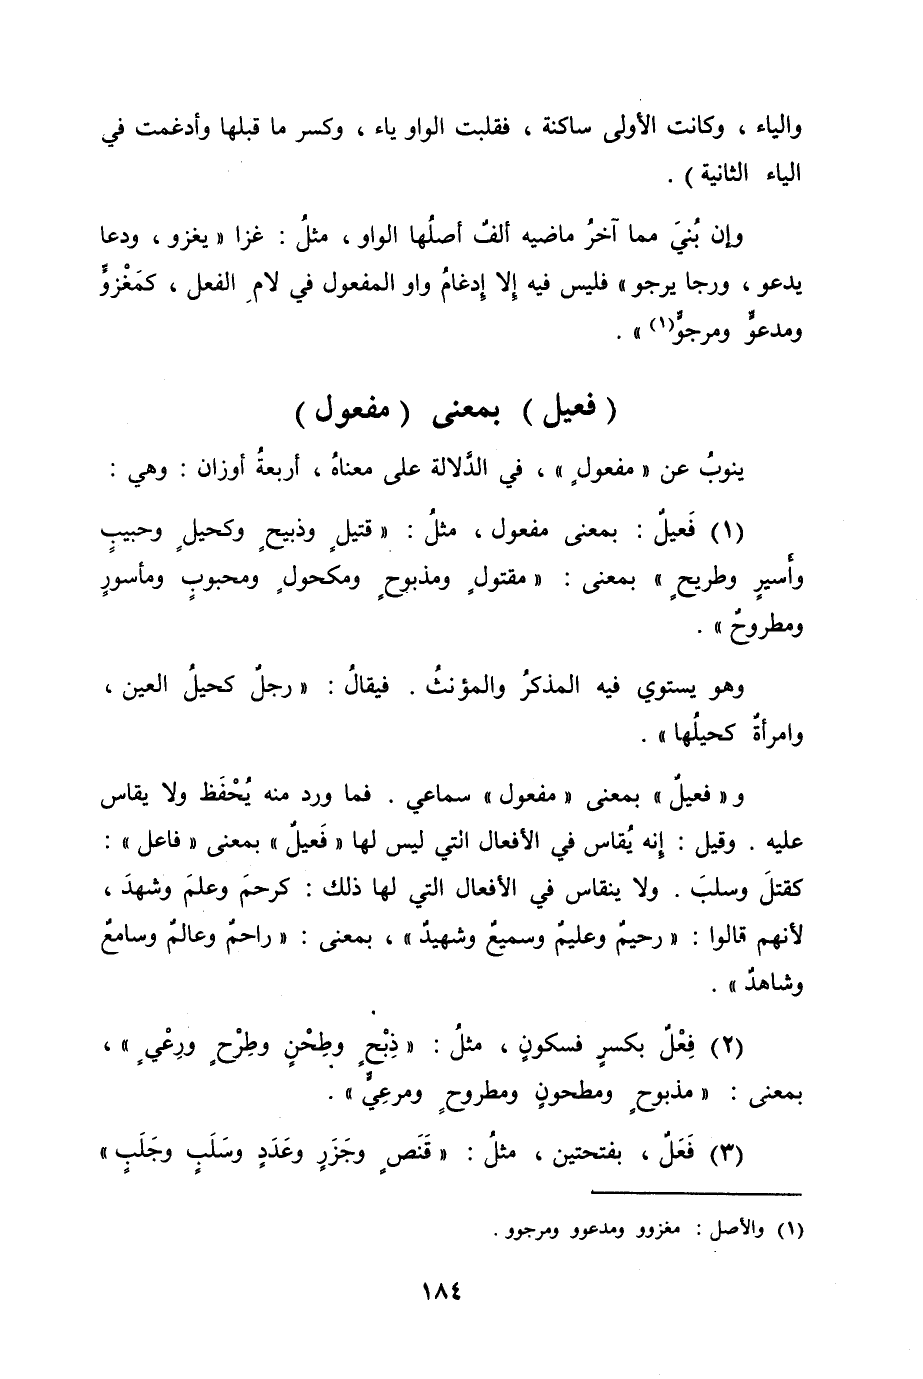 والياء ، وكانت الأولى ساكنة ، فقلبت الواو ياء ، وكسر ما قبلها وأدغمت في
الياء الثانية ) .
وإن بُنيَ مما آخرُ ماضيه ألفٌ أصلُها الواو ، مثلُ : غزا « يغزو ، ودعا
يدعو ، ورجا يرجو » فليس فيه إلا إدغامُ واو المفعول في لامِ الفعل ، كمَغْزوٍّ
ومدعوٍّ ومرجوٍّ(١) » .
( فعيل ) بمعنى ( مفعول )
ينوبُ عن « مفعولٍ » ، في الدَّلالة على معناهُ ، أربعةُ أوزان : وهي :
(١) فَعيلٌ : بمعنى مفعول ، مثلُ : « قتيلٍ وذبيحٍ وكحيلٍ وحبيبٍ
وأسيرٍ وطريحٍ » بمعنى : « مقتولٍ ومذبوحٍ ومكحولٍ ومحبوبٍ ومأسورٍ
ومطروحٌ » .
وهو يستوي فيه المذكرُ والمؤنثُ . فيقالُ : « رجلٌ كحيلُ العين ،
وامرأةٌ كحيلُها » .
و « فعيلٌ » بمعنى « مفعول » سماعي . فما ورد منه يُحْفَظ ولا يقاس
عليه . وقيل : إنه يُقاس في الأفعال التي ليس لها « فَعيلٌ » بمعنى « فاعل » :
كقتلَ وسلبَ . ولا ينقاس في الأفعال التي لها ذلك : كرحمَ وعلمَ وشهدَ ،
لأنهم قالوا : « رحيمٌ وعليمٌ وسميعٌ وشهيدٌ » ، بمعنى : « راحمٌ وعالمٌ وسامعٌ
وشاهدٌ » .
(٢) فِعْلٌ بكسرٍ فسكونٍ ، مثلُ : « ذِبْحٍ وطِحْنٍ وطِرْحٍ ورِعْيٍ » ،
بمعنى : « مذبوحٍ ومطحونٍ ومطروحٍ ومرعِيٍّ » .
(٣) فَعَلٌ ، بفتحتين ، مثلُ : « قَنَصٍ وجَزَرٍ وعَدَدٍ وسَلَبٍ وجَلَبٍ »
(١) والأصل : مغزوو ومدعوو ومرجوو .
١٨٤